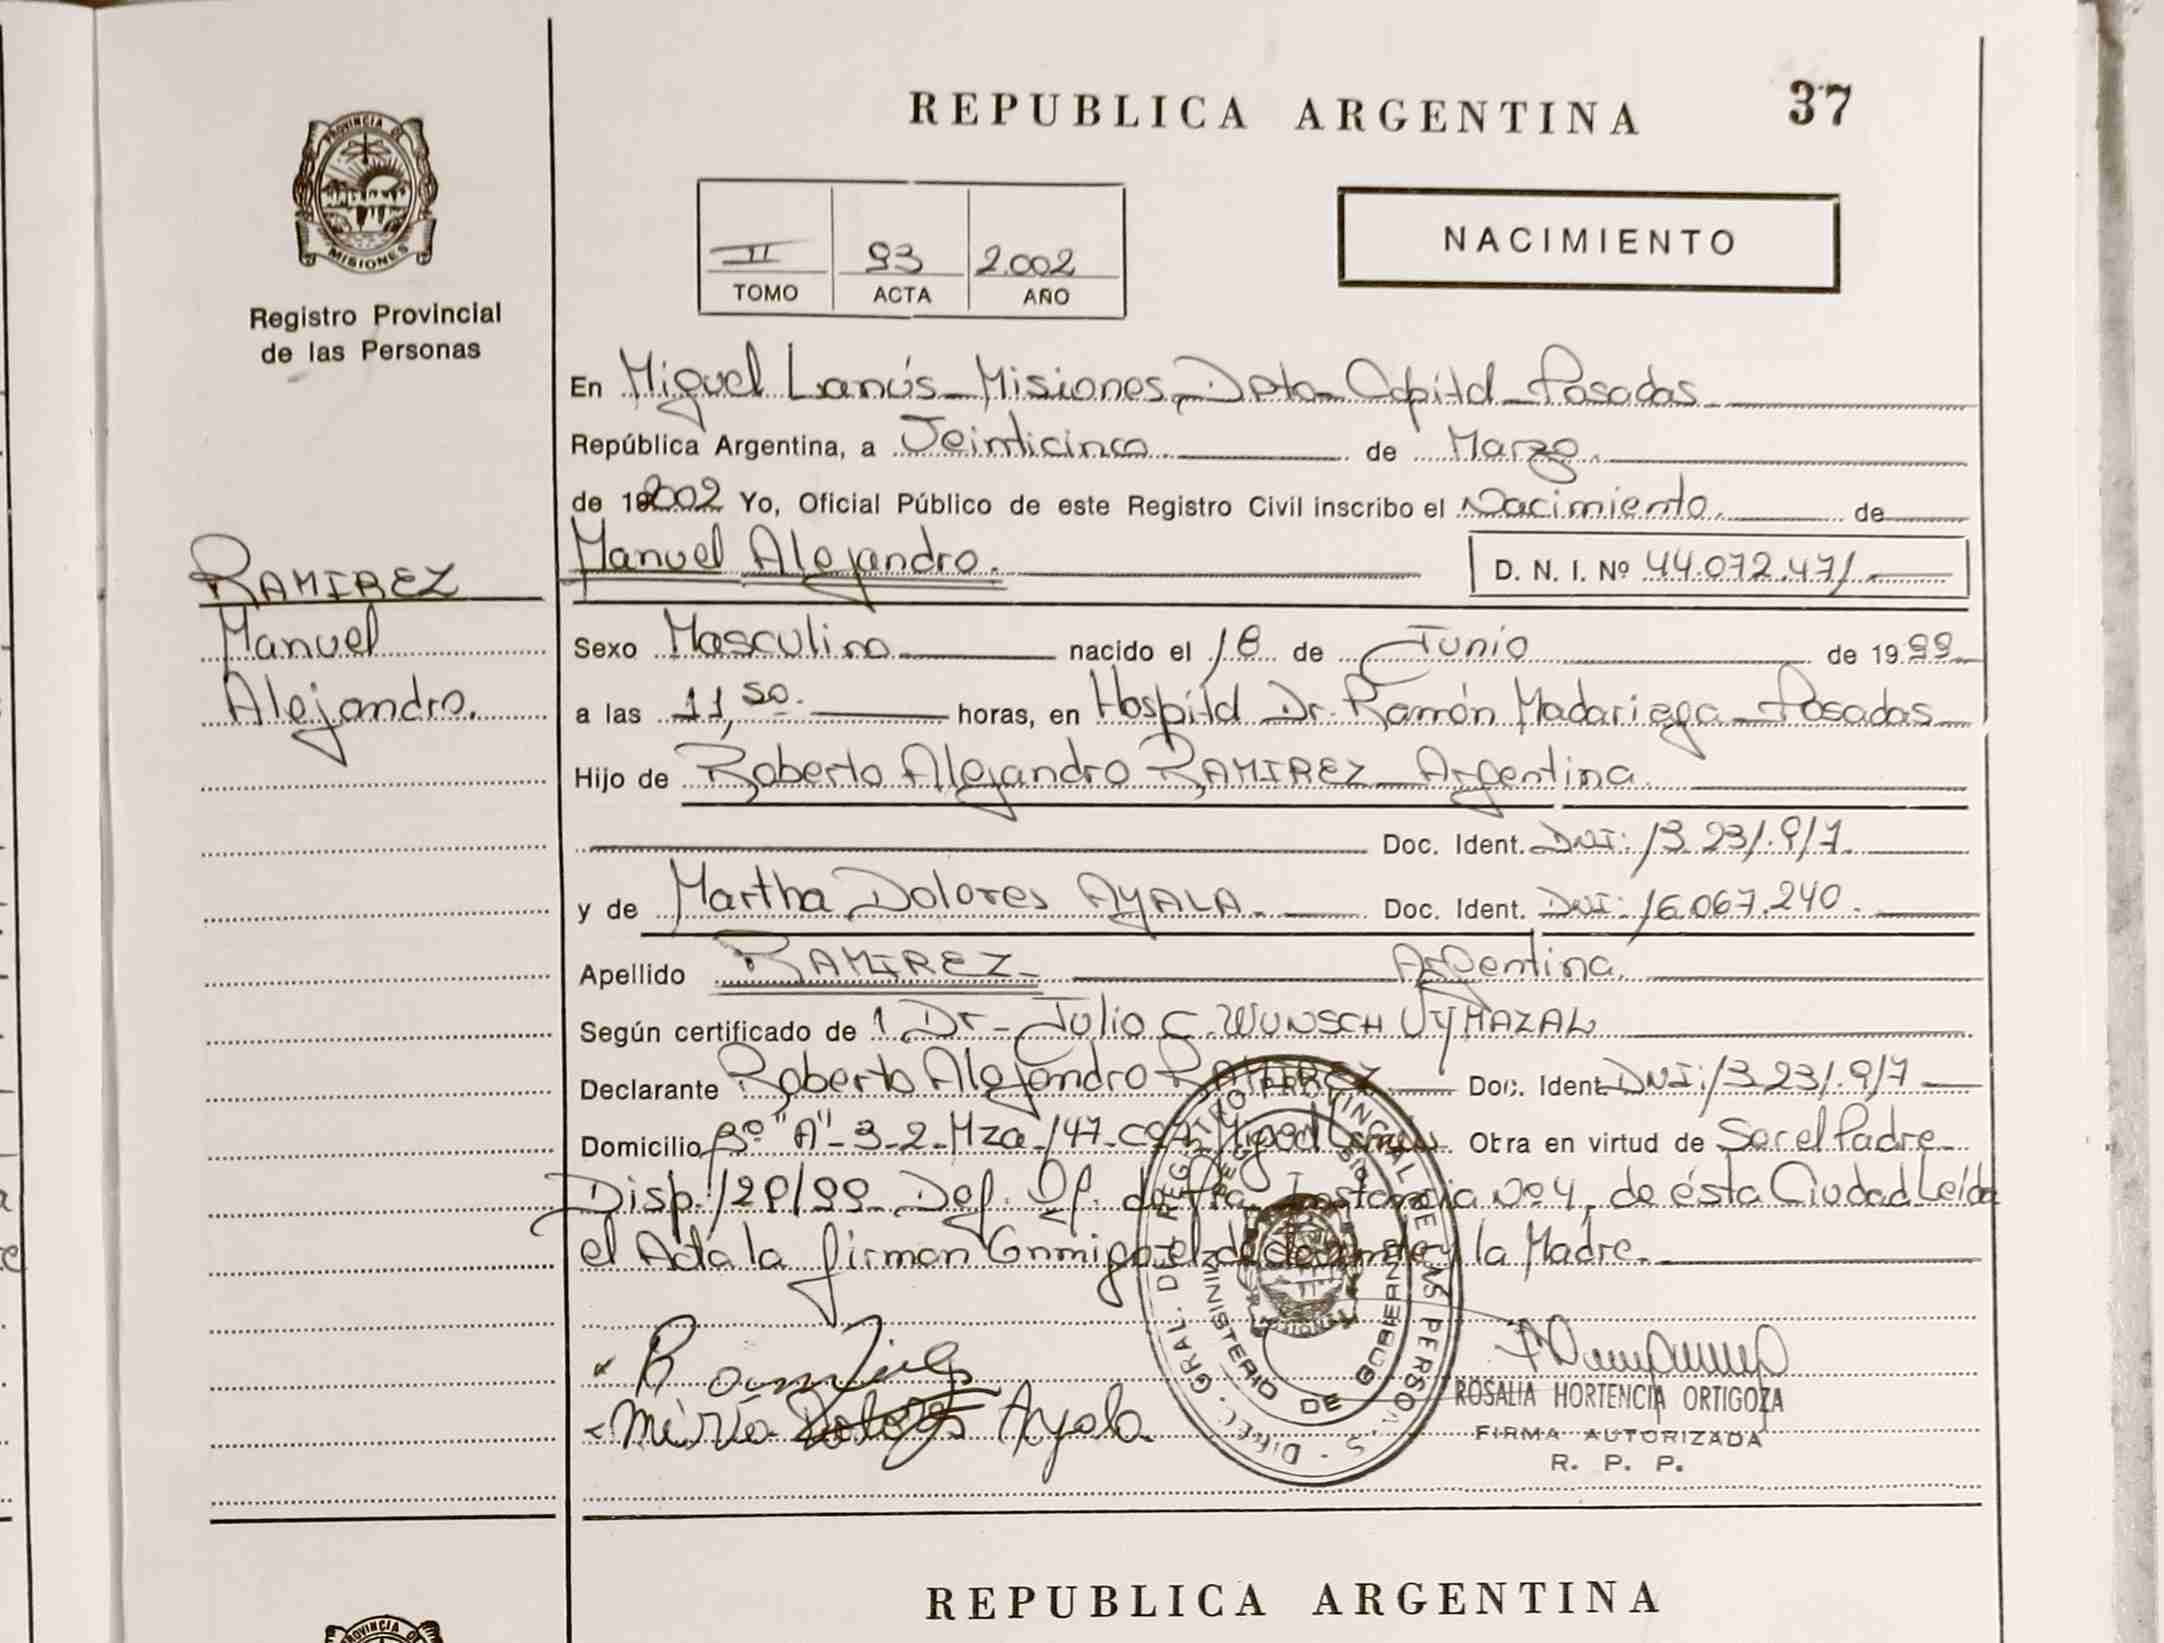 REPUBLICA ARGENTINA
37
PROVINCIA DE
MISIONES
Registro Provincial
de las Personas
II 93 2.002
TOMO ACTA AÑO
NACIMIENTO
En Miguel Lanús - Misiones, Dpto Capital - Posadas
República Argentina, a Veinticinco de Marzo.
de 2002 Yo, Oficial Público de este Registro Civil inscribo el Nacimiento. de
Manuel Alejandro. D. N. I. Nº 44.072.471
RAMIREZ
Manuel
Alejandro.
Sexo Masculino nacido el 18 de Junio de 1999
a las 11,50. horas, en Hospital Dr. Ramón Madariaga - Posadas
Hijo de Roberto Alejandro RAMIREZ - Argentina.
Doc. Ident. DNI: 13.231.917.
y de Martha Dolores AYALA. Doc. Ident. DNI: 16.067.240.
Apellido RAMIREZ - Argentina.
Según certificado de 1 Dr - Julio C. WUNSCH VYMAZAL
Declarante Roberto Alejandro RAMIREZ Doc. Ident. DNI: 13.231.917
Domicilio Bº "A" - 3-2-Mza-147- Otra en virtud de Ser el Padre
Disp. 129/99 Def. Of. de 1ra Instancia Nº 4, de ésta Ciudad Leída
el Acta la firman Conmigo el declarante y la Madre.
Dolores Ayala
DIREC. GRAL. DEL REGISTRO PROVINCIAL DE LAS PERSONAS
MINISTERIO DE GOBIERNO
ROSALIA HORTENCIA ORTIGOZA
FIRMA AUTORIZADA
R. P. P.
REPUBLICA ARGENTINA
PROVINCIA DE